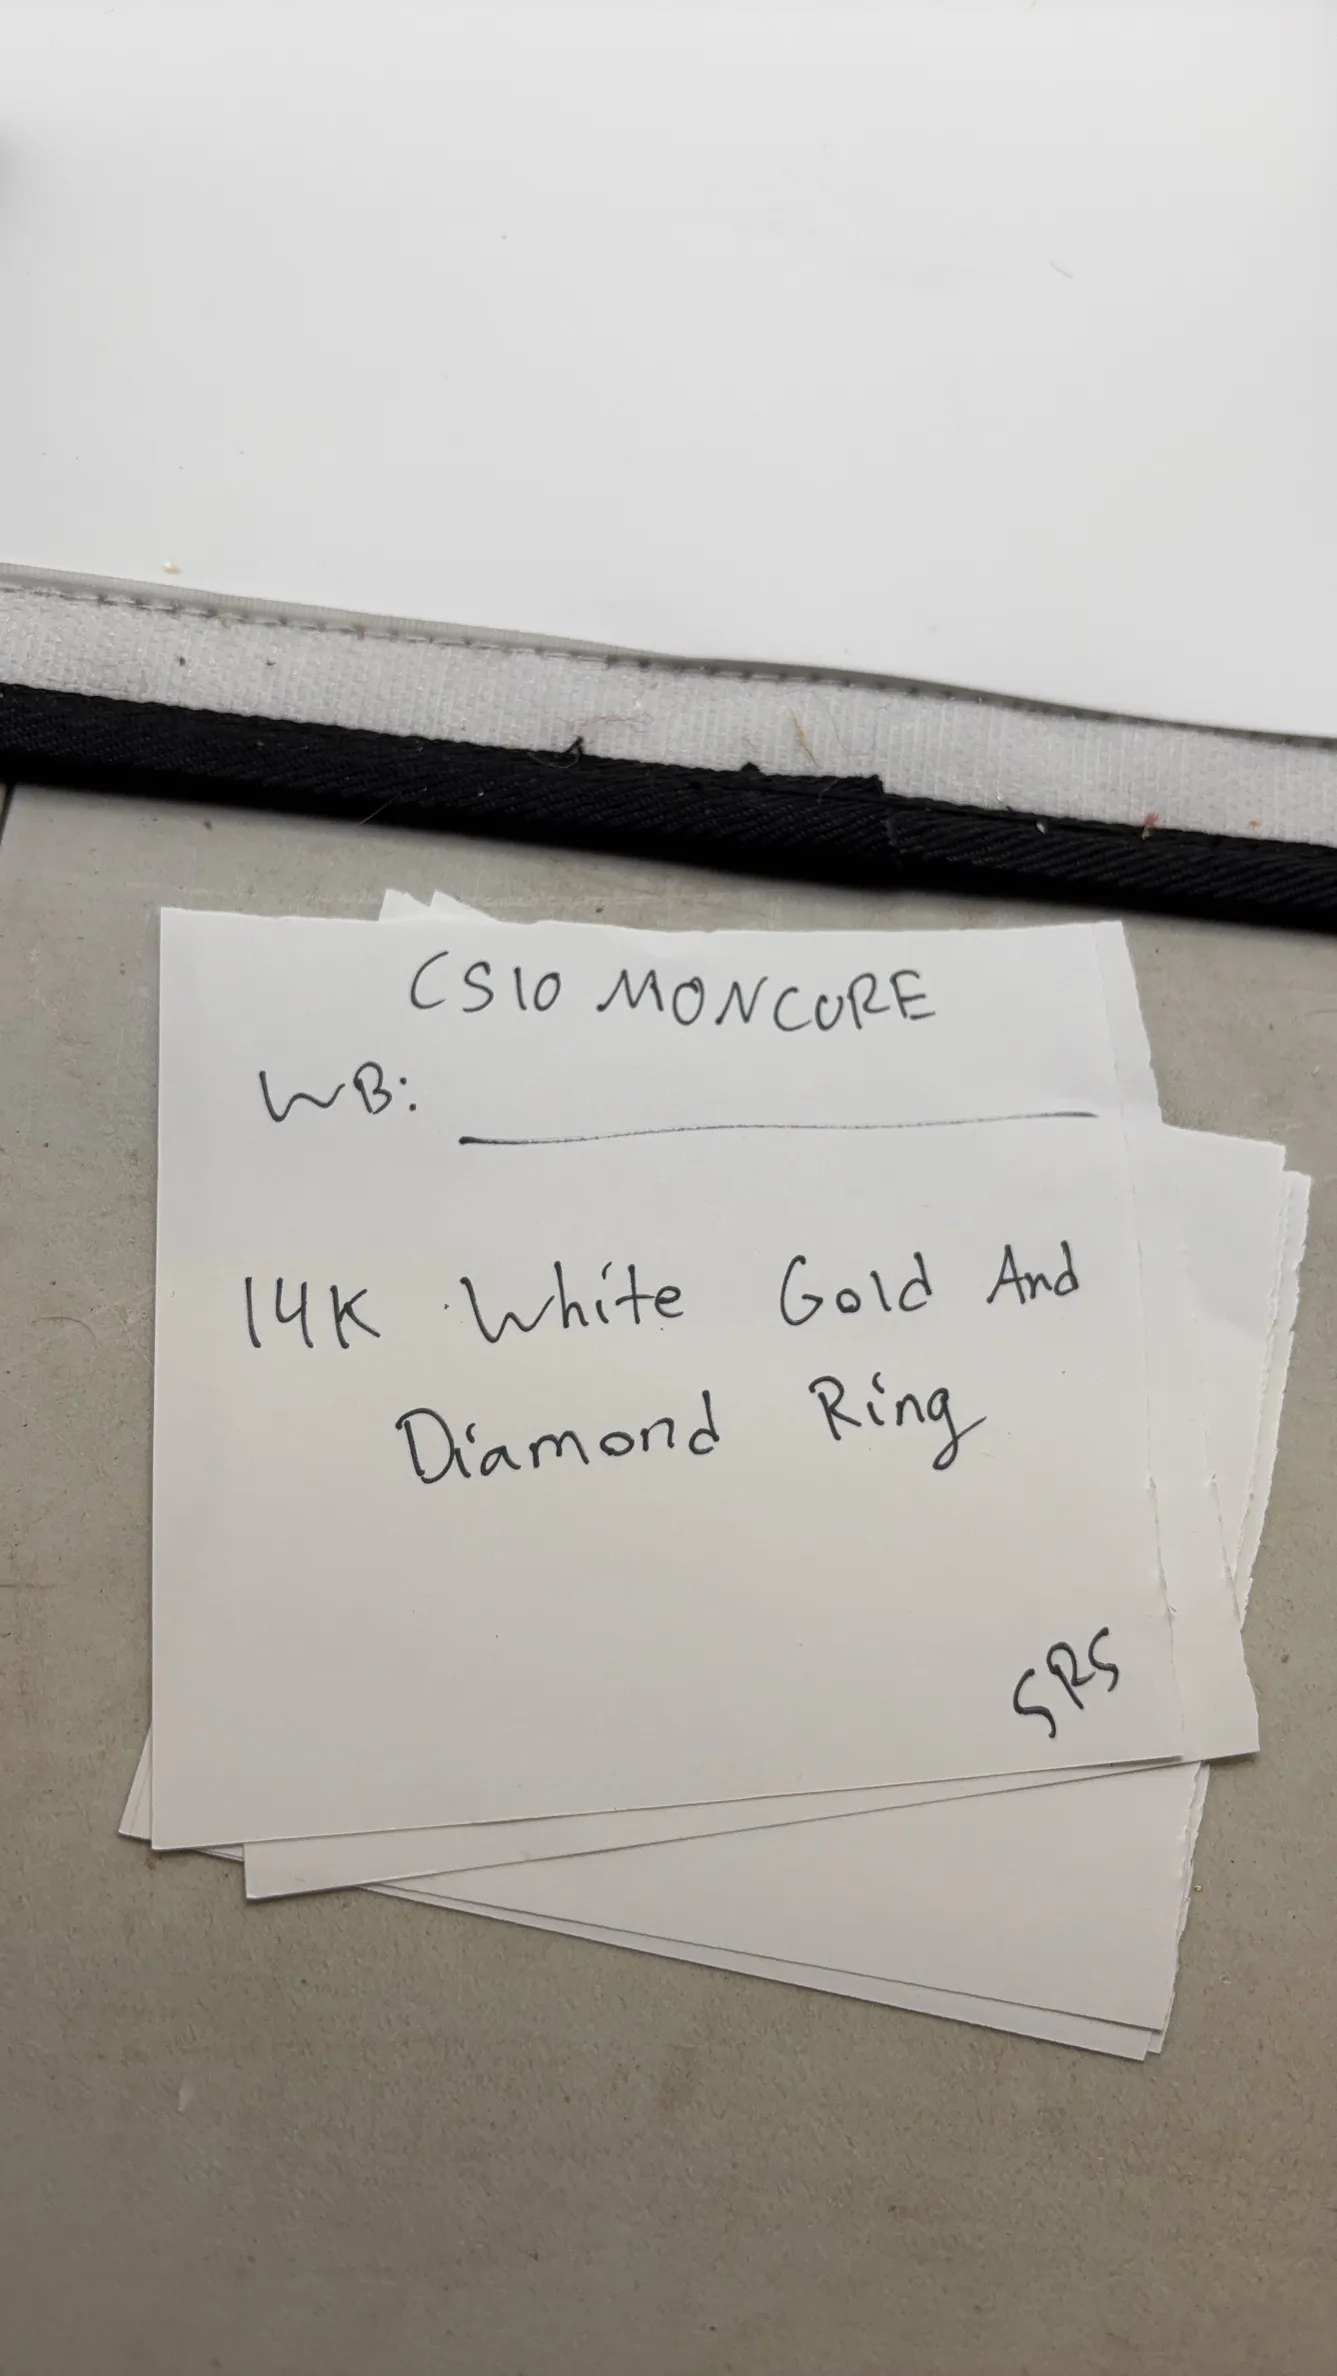 CS10 MONCURE
WB:
14K White Gold And
Diamond Ring
SRS